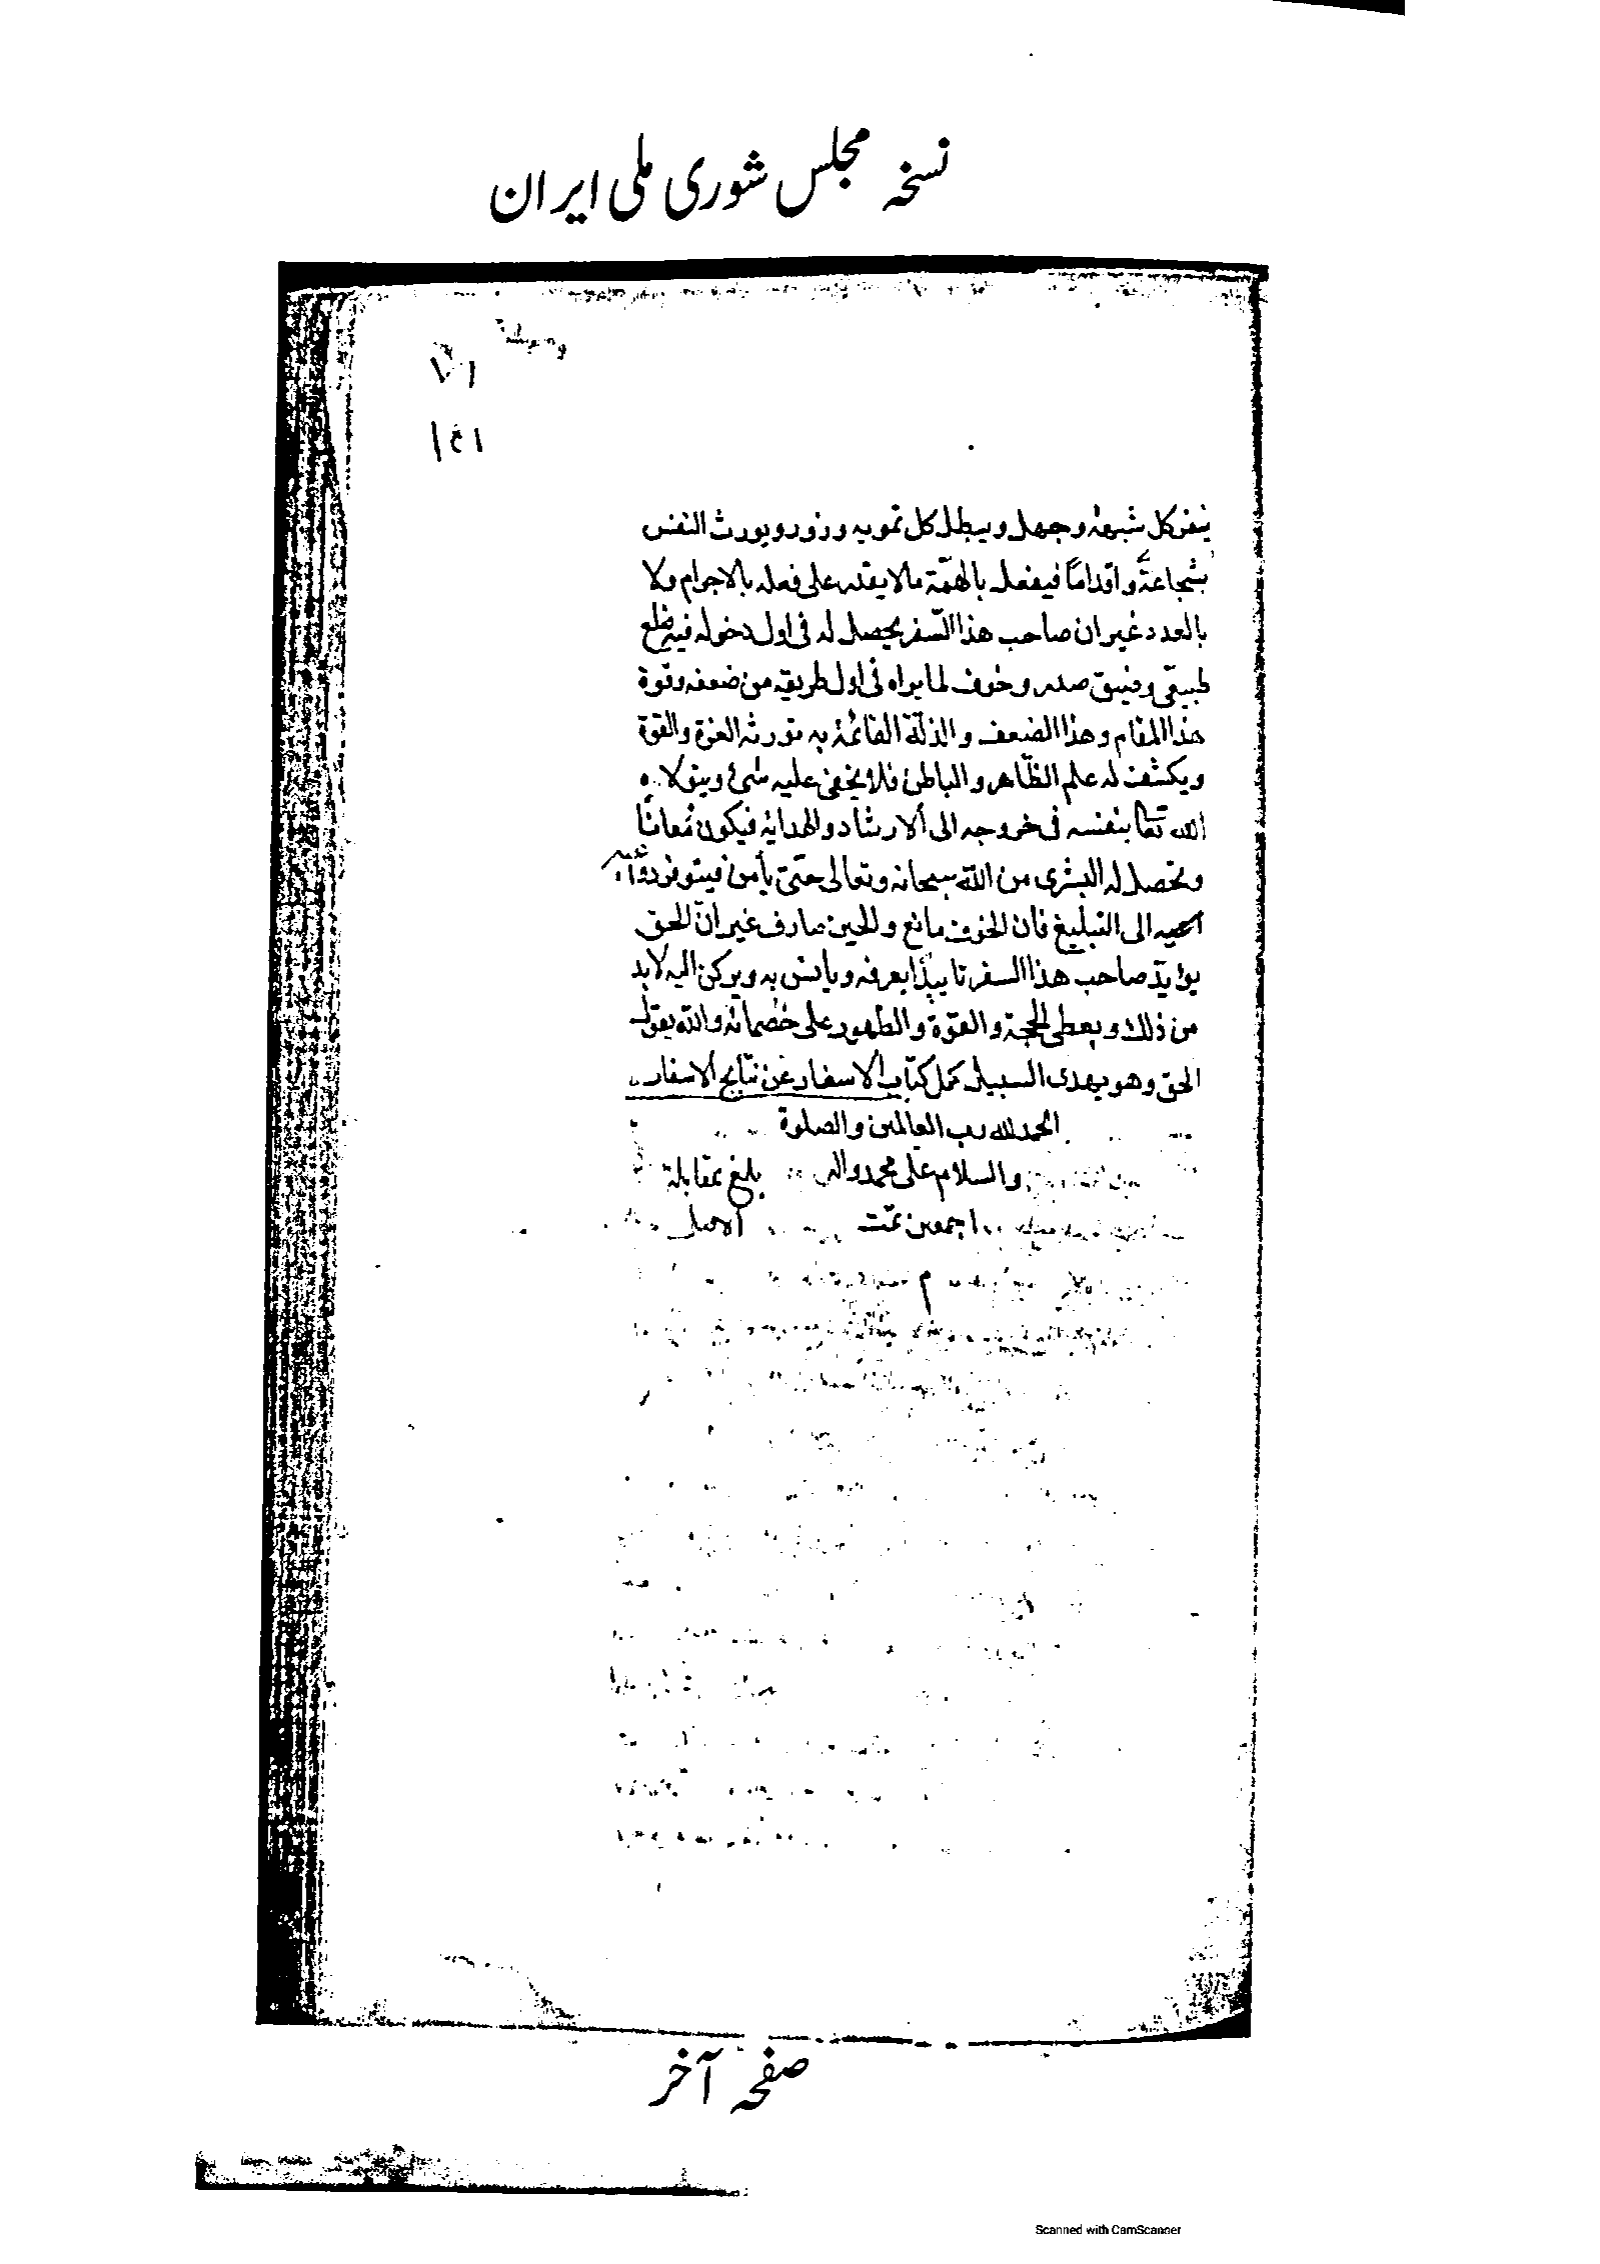 نسخه مجلس شوری ملی ایران
۱۴۱
ينفر كل شبهة وجهل ويبطل كل تمويه وزور ويورث النفس
شجاعة واقداماً فيفعل بالهمّة مالا يقدر على فعله بالاجرام ولا
بالعدد غير ان صاحب هذا السّفر يحصل له فى اول دخوله فيه
وضيق صدر وخوف لما يراه فى اول طريقه من ضعفه وقوة
هذا المقام وهذا الضعف والذلّة القائمة به تورثه العزة والقوة
ويكشف له علم الظّاهر والباطن فلا يخفى عليه شئ ويتولاه
الله تعا بنفسه فى خروجه الى الارشاد والهداية فيكون مُعانًا
وتحصل له البشرى من الله سبحانه وتعالى حتى يأمن فيتوفر
الى التبليغ فان الخوف مانع والجبن صارف غير انّ الحق
يؤيد صاحب هذا السفر تاييدًا يعرفه ويانس به ويركن اليه لابد
من ذلك ويعطى الحجة والقوّة والظهور على خصمائه والله يقول
الحق وهو يهدى السبيل كمل كتاب الاسفار عن نتايج الاسفار
الحمد لله رب العالمين والصلوة
والسلام على محمد واله بلغ مقابلة
اجمعين تمت الاصل
م
صفحه آخر
Scanned with CamScanner